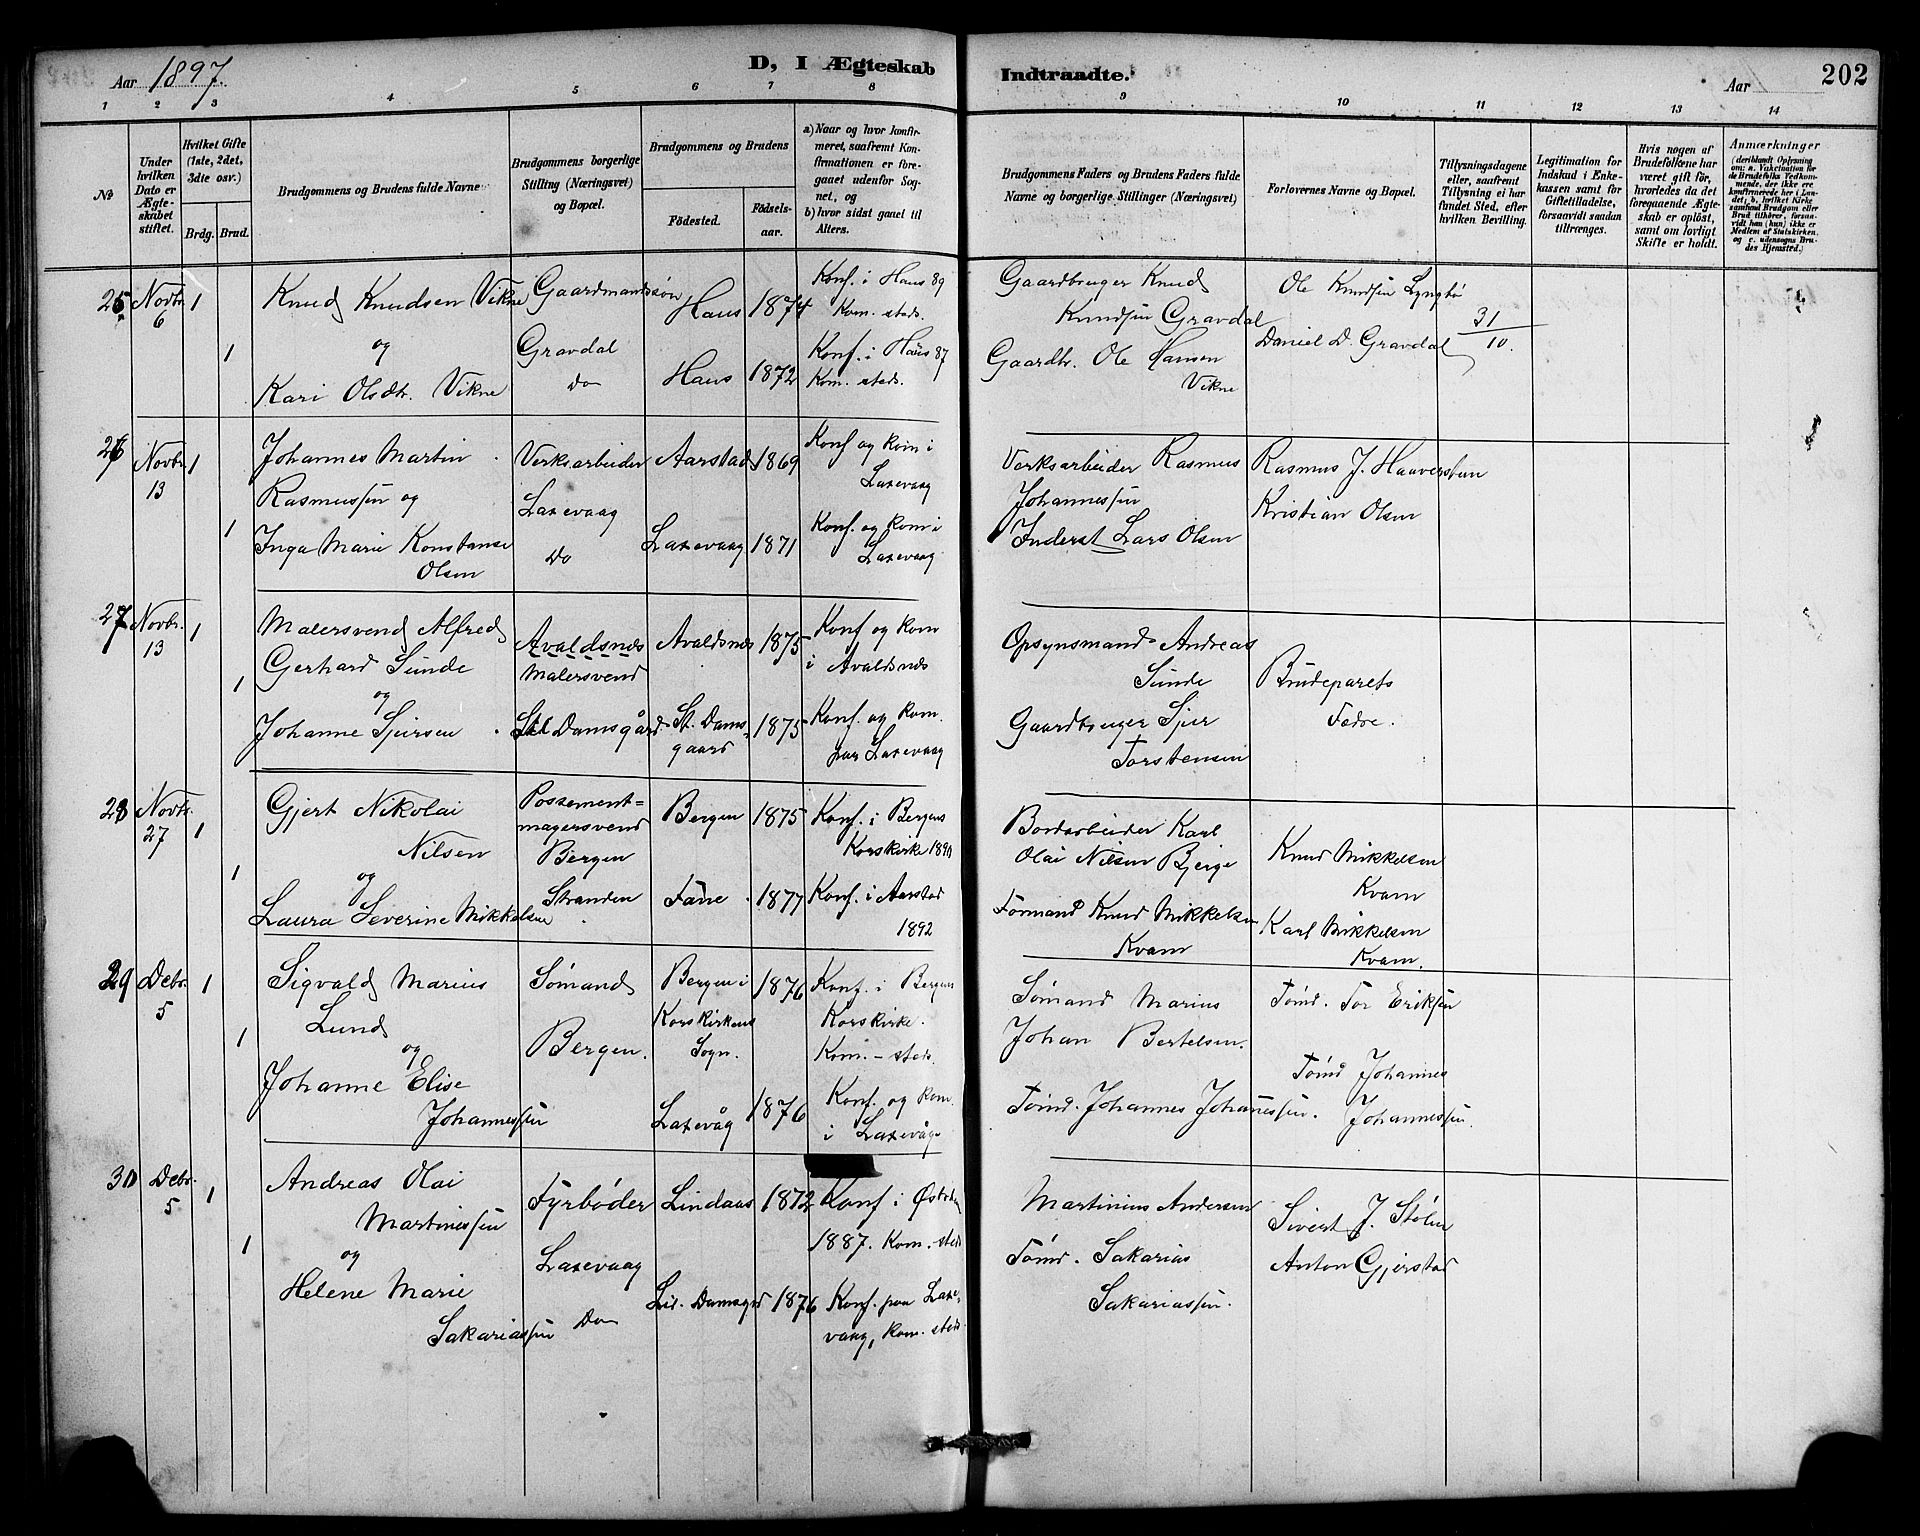 Aar 1897.
D, I Ægteskab
Indtraadte.
Aar
202
1 2 3 4 5 6 7 8 9 10 11 12 13 14
No
Under hvilken Dato er Ægteskabet stiftet.
Hvilket Gifte (1ste, 2det, 3die osv.)
Brdg. Brud.
Brudgommens og Brudens fulde Navne
Brudgommens borgerlige Stilling (Næringsvei) og Bopæl.
Brudgommens og Brudens
Födested.
Födselsaar.
a) Naar og hvor konfirmeret, saafremt Konfirmationen er foregaaet udenfor Sognet, og
b) hvor sidst gaaet til Alters.
Brudgommens Faders og Brudens Faders fulde Navne og borgerlige Stillinger (Næringsvei)
Forlovernes Navne og Bopæl.
Tillysningsdagene eller, saafremt Tillysning ei har fundet Sted, efter hvilken Bevilling.
Legitimation for Indskud i Enkekassen samt for Giftetilladelse, forsaavidt saadan tiltrænges.
Hvis nogen af Brudefolkene har været gift för, hvorledes da det foregaaende Ægteskab er oplöst, samt om lovligt Skifte er holdt.
Anmærkninger
25 Novbr. 6 1 Knud Knudsen Vikne Gaardmandssøn Haus 1874 Konf. i Haus 89
Kom. steds.
Gaardbruger Knud Knudsen Gravdal
Ole Knudsen Lyngbø
31/10.
og
Gravdal
1 Kari Olsdtr. Vikne do Haus 1872 Konf. i Haus 87
Kom. steds.
Gaardbr. Ole Hansen Vikne
Daniel D. Gravdal
26 Novbr. 13 1 Johannes Martin Rasmussen og
Verksarbeider Laxevaag
Aarstad 1869 Konf og kom i Laxevaag
Verksarbeider Rasmus Johannessen
Rasmus J. Haaverstun
1 Inga Marie Konstanse Olsen
Do Laxevaag 1871 Konf. og kom i Laxevaag
Inderst Lars Olsen
Kristian Olsen
27 Novbr. 13 1 Malersvend Alfred Gerhard Sunde
Avaldsnes Malersvend
Avaldsnes 1875 Konf og kom i Avaldsnes
Opsynsmand Andreas Sunde
Brudeparets Fedre.
og
1 Johanne Sjursen
Damsgård St. Damsgaard 1875 Konf. og kom. paa Laxevaag
Gaardbruger Sjur Torstensen
28 Novbr. 27 1 Gjert Nikolai Nilsen
Possementmagersvend Bergen
Bergen 1875 Konf. i Bergens Korskirke 1890
Bordarbeider Karl Olai Nilsen Bjerge
Knud Mikkelsen Kvam
og
1 Laura Severine Mikkelsen
Stranden Fane 1877 Konf. i Aarstad 1892
Formand Knud Mikkelsen Kvam
Karl Mikkelsen Kvam.
29 Debr. 5 1 Sigvald Marius Lund
Sømand Bergen.
Bergen i Korskirkens Sogn. 1876 Konf. i Bergens Korskirke. Kom. - steds.
Sømand Marius Johan Bertelsen.
Tømd. Tor Eriksen
og
1 Johanne Elise Johannessen
Laxevåg 1876 Konf. og kom. i Laxevåg
Tømd. Johannes Johannessen.
Tømd Johannes Johannessen.
30 Debr. 5 1 Andreas Olai Martinessen
Fyrbøder Laxevaag
Lindaas 1872 Konf i 1887. Kom. steds
Martinius Andersen
Sivert J. Stølen
og
1 Helene Marie Sakariassen
Do Lid. Damsgrd 1876 Konf. paa Laxevaag, kom. steds.
Tømd. Sakarias Sakariassen.
Anton Gjerstad